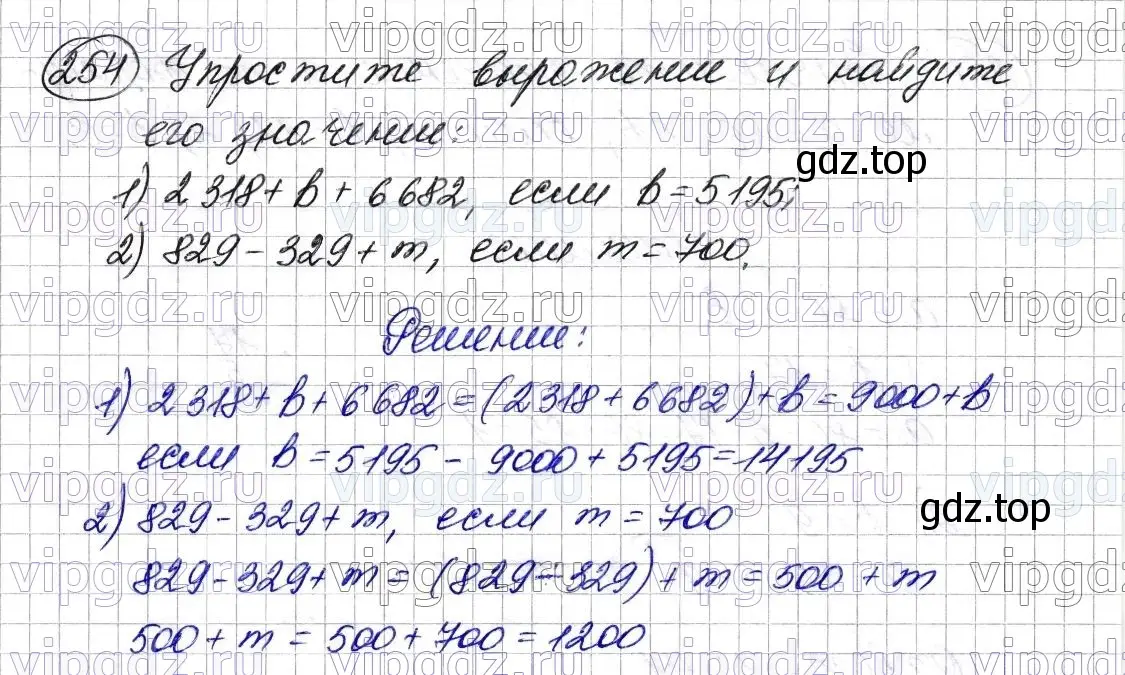 254 Упростите выражение и найдите
его значение:
gdz.top
1) 2 318 + b + 6 682, если b = 5195;
2) 829 - 329 + m, если m = 700.
Решение:
1) 2 318 + b + 6 682 = (2 318 + 6 682) + b = 9000 + b
если b = 5195 - 9000 + 5195 = 14195
2) 829 - 329 + m, если m = 700
gdz.top
829 - 329 + m = (829 - 329) + m = 500 + m
500 + m = 500 + 700 = 1200
vipgdz.ru